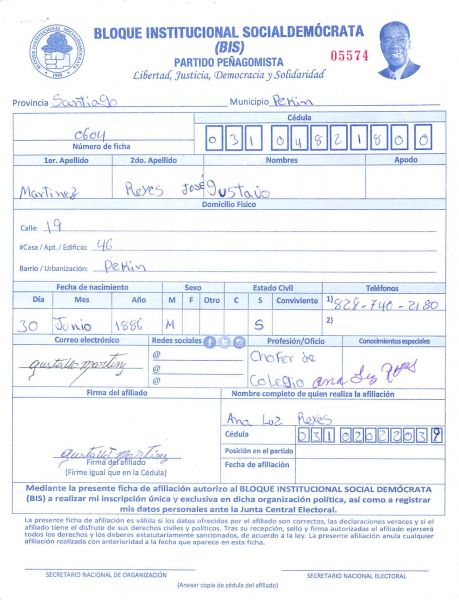 BLOQUE INSTITUCIONAL SOCIALDEMÓCRATA
(BIS)
PARTIDO PEÑAGOMISTA
Libertad, Justicia, Democracia y Solidaridad
05574
Provincia Santiago Municipio Pekin
Cédula
0604 031 0482180 0
Número de ficha
1er. Apellido 2do. Apellido Nombres Apodo
Martinez Reyes José Gustavo
Domicilio Físico
Calle: 19
#Casa / Apt. / Edificio: 46
Barrio / Urbanización: Pekin
Fecha de nacimiento Sexo Estado Civil Teléfonos
Día Mes Año M F Otro C S Conviviente 1) 829-740-2180
30 Junio 1886 M S 2)
Correo electrónico Redes sociales Profesión/Oficio Conocimientos especiales
gustavo martinez @ Chofer de
@ Colegio ana luz Reyes
@
Firma del afiliado Nombre completo de quien realiza la afiliación
Ana Luz Reyes
Cédula 031 0202203 9
gustavo martinez Posición en el partido
Firma del afiliado
(Firme igual que en la Cédula) Fecha de afiliación
Mediante la presente ficha de afiliación autorizo al BLOQUE INSTITUCIONAL SOCIAL DEMÓCRATA
(BIS) a realizar mi inscripción única y exclusiva en dicha organización política, así como a registrar
mis datos personales ante la Junta Central Electoral.
La presente ficha de afiliación es válida si los datos ofrecidos por el afiliado son correctos, las declaraciones veraces y si el
afiliado tiene el disfrute de sus derechos civiles y políticos. Tras su recepción, sello y firma autorizadas el afiliado ejercerá
todos los derechos y los deberes estatutariamente sancionados, de acuerdo a la ley. La presente afiliación anula cualquier
afiliación realizada con anterioridad a la fecha que aparece en esta ficha.
SECRETARIO NACIONAL DE ORGANIZACIÓN SECRETARIO NACIONAL ELECTORAL
(Anexar copia de cédula del afiliado)